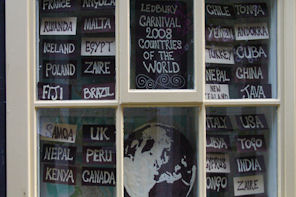 FRANCE ANGOLA
RWANDA MALTA
ICELAND EGYPT
POLAND ZAIRE
FIJI BRAZIL
LEDBURY
CARNIVAL
2008
COUNTRIES
OF THE
WORLD
CHILE TONGA
YEMEN ANDORRA
TURKEY CUBA
NEPAL CHINA
NEW ZEALAND JAVA
SAMOA UK
NEPAL PERU
KENYA CANADA
ITALY USA
CUBA TOGO
PERU INDIA
CONGO ZAIRE